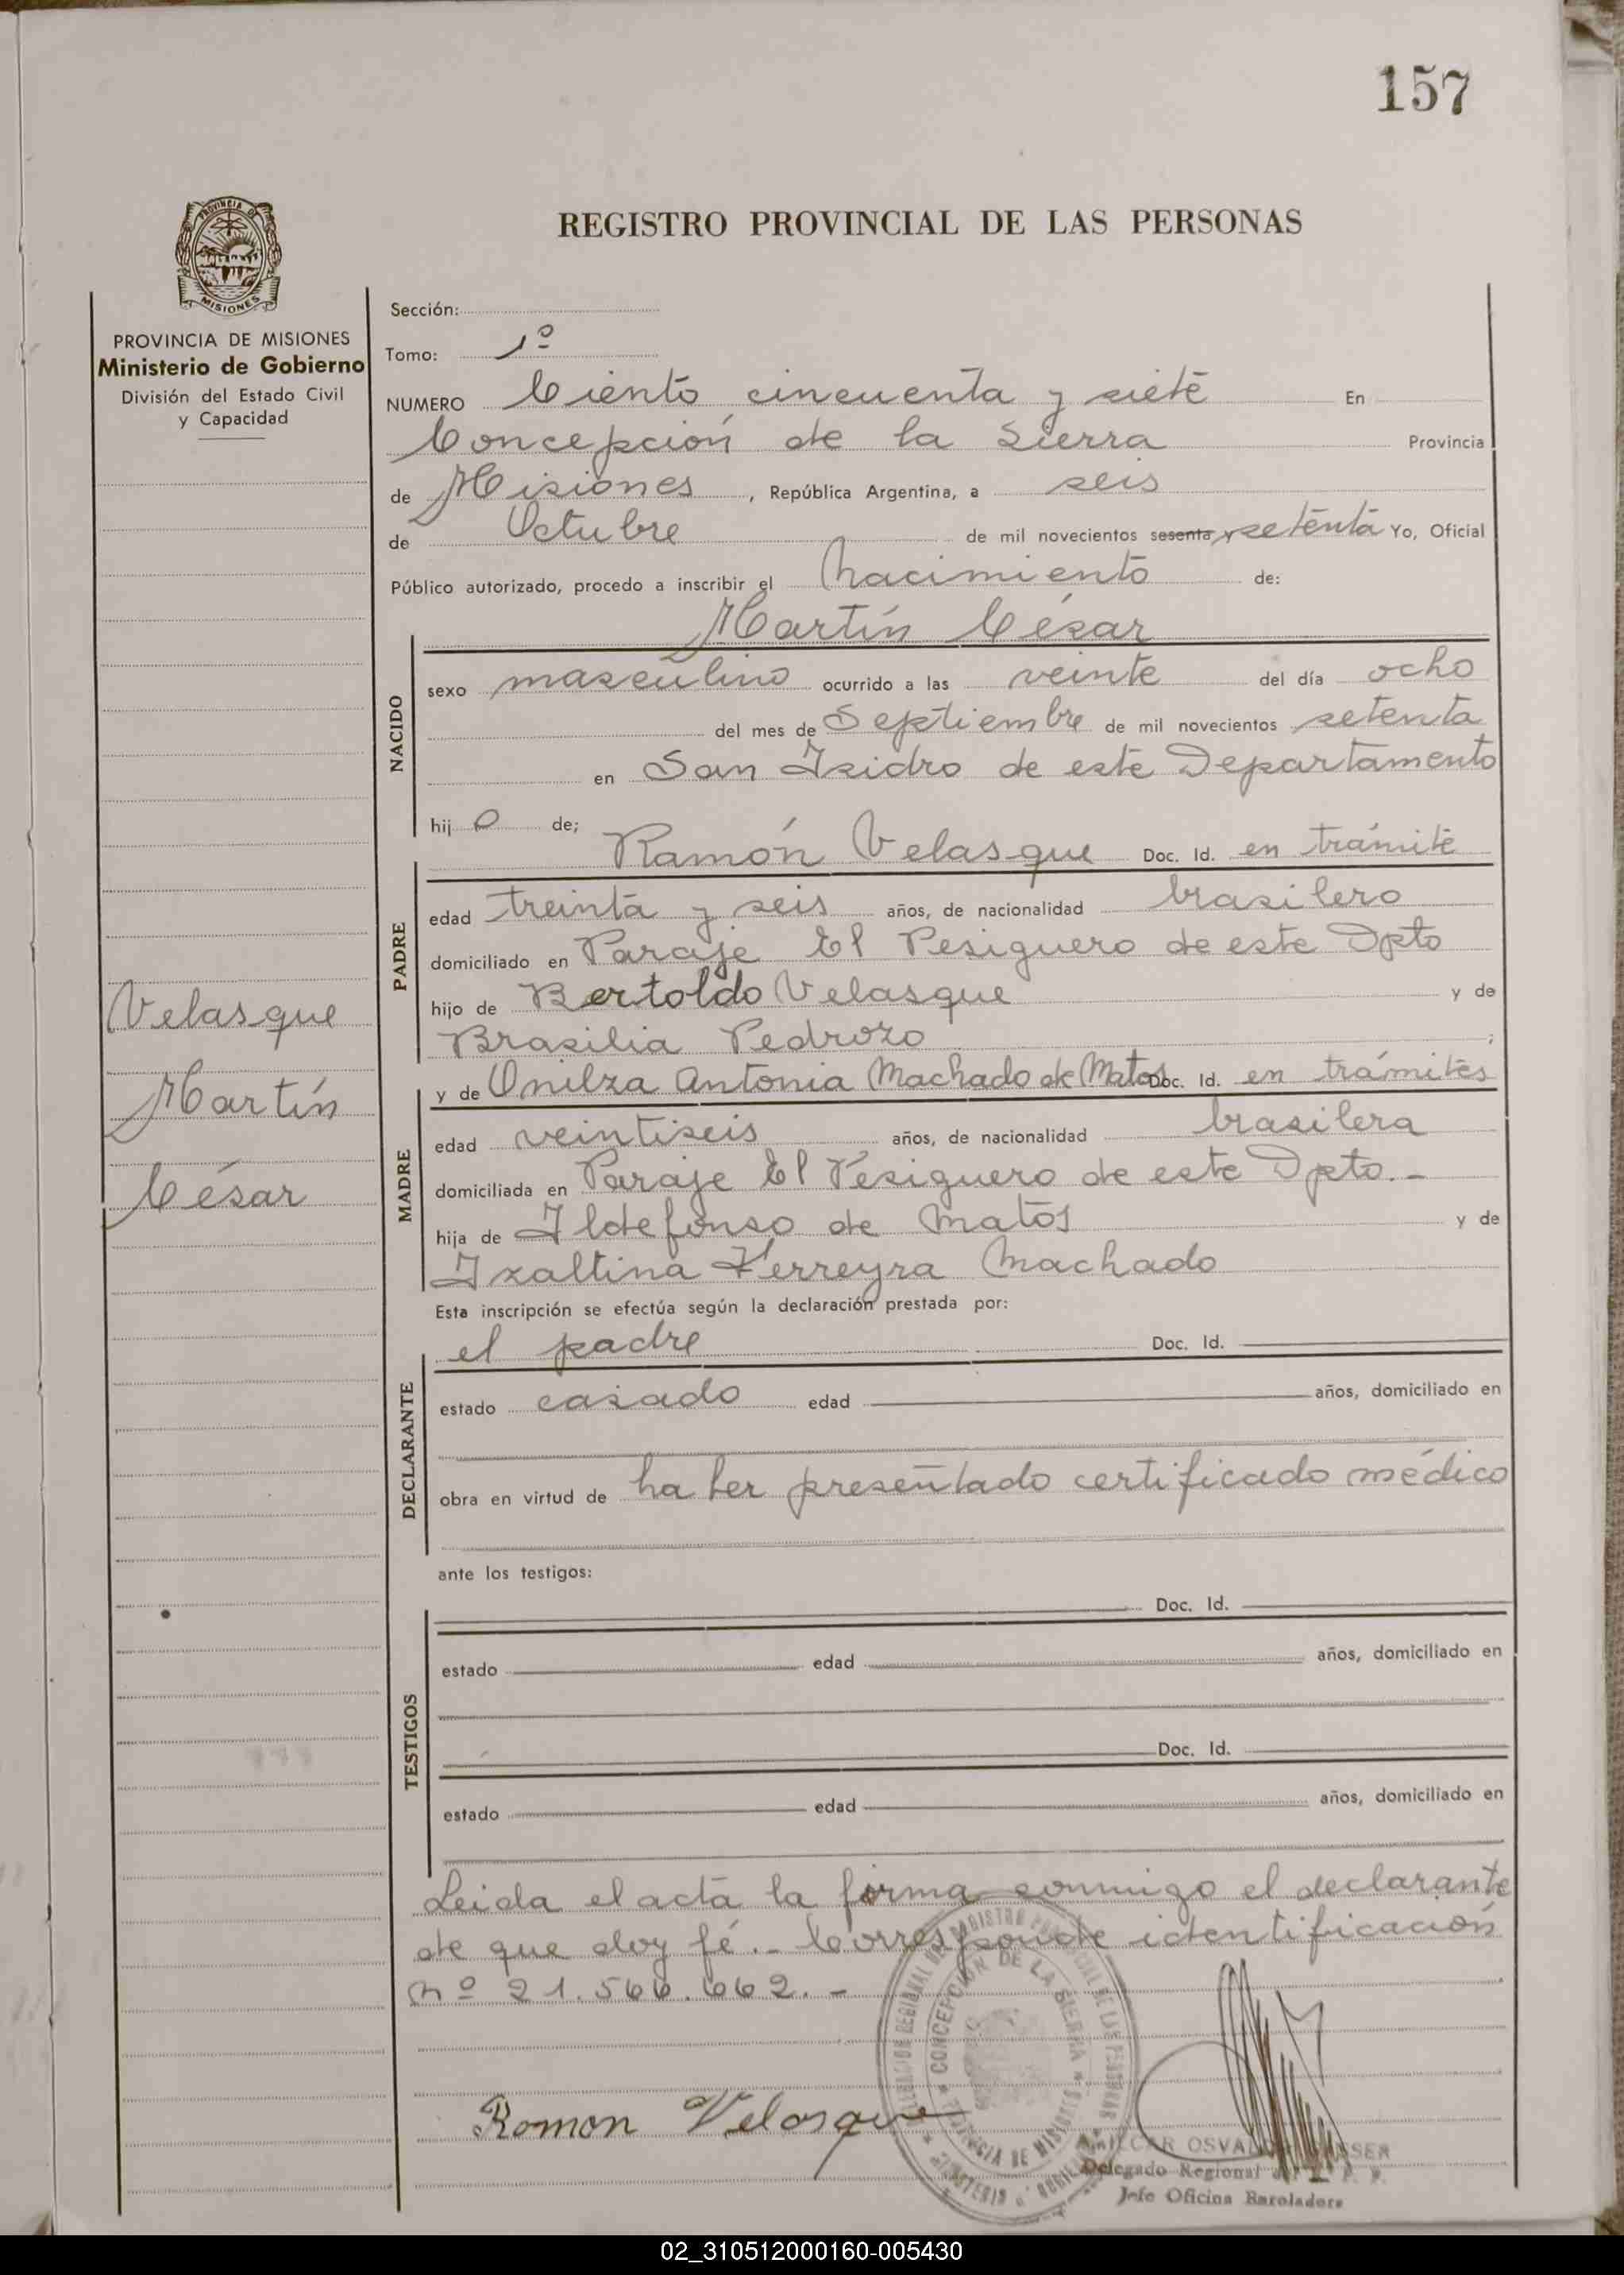 157
REGISTRO PROVINCIAL DE LAS PERSONAS
PROVINCIA DE
MISIONES
PROVINCIA DE MISIONES
Ministerio de Gobierno
División del Estado Civil
y Capacidad
Sección:
Tomo: 1º
NUMERO Ciento cincuenta y siete En
Concepción de la Sierra Provincia
de Misiones, República Argentina, a seis
de Octubre de mil novecientos sesenta y setenta Yo, Oficial
Público autorizado, procedo a inscribir el Nacimiento de:
Martín César
NACIDO
sexo masculino ocurrido a las veinte del día ocho
del mes de Septiembre de mil novecientos setenta
en San Isidro de este Departamento
hijo de;
Ramón Velasque Doc. Id. en trámite
PADRE
edad treinta y seis años, de nacionalidad brasilero
domiciliado en Paraje El Pesiguero de este Dpto
hijo de Bertoldo Velasque y de
Brasilia Pedrozo ;
y de Onilza Antonia Machado de Matos Doc. Id. en trámites
MADRE
edad veintiseis años, de nacionalidad brasilera
domiciliada en Paraje El Pesiguero de este Dpto.-
hija de Ildefonso de Matos y de
Izaltina Ferreyra Machado
Velasque
Martín
César
Esta inscripción se efectúa según la declaración prestada por:
el padre Doc. Id.
DECLARANTE
estado casado edad años, domiciliado en
obra en virtud de haber presentado certificado médico
ante los testigos:
TESTIGOS
Doc. Id.
estado edad años, domiciliado en
Doc. Id.
estado edad años, domiciliado en
Leida el acta la firma conmigo el declarante
de que doy fé.- Corresponde identificación
nº 21.566.662.-
CONCEPCION DE LA SIERRA
PROVINCIA DE MISIONES
Romon Velasque
Delegado Regional
Jefe Oficina Enroladora
02_310512000160-005430